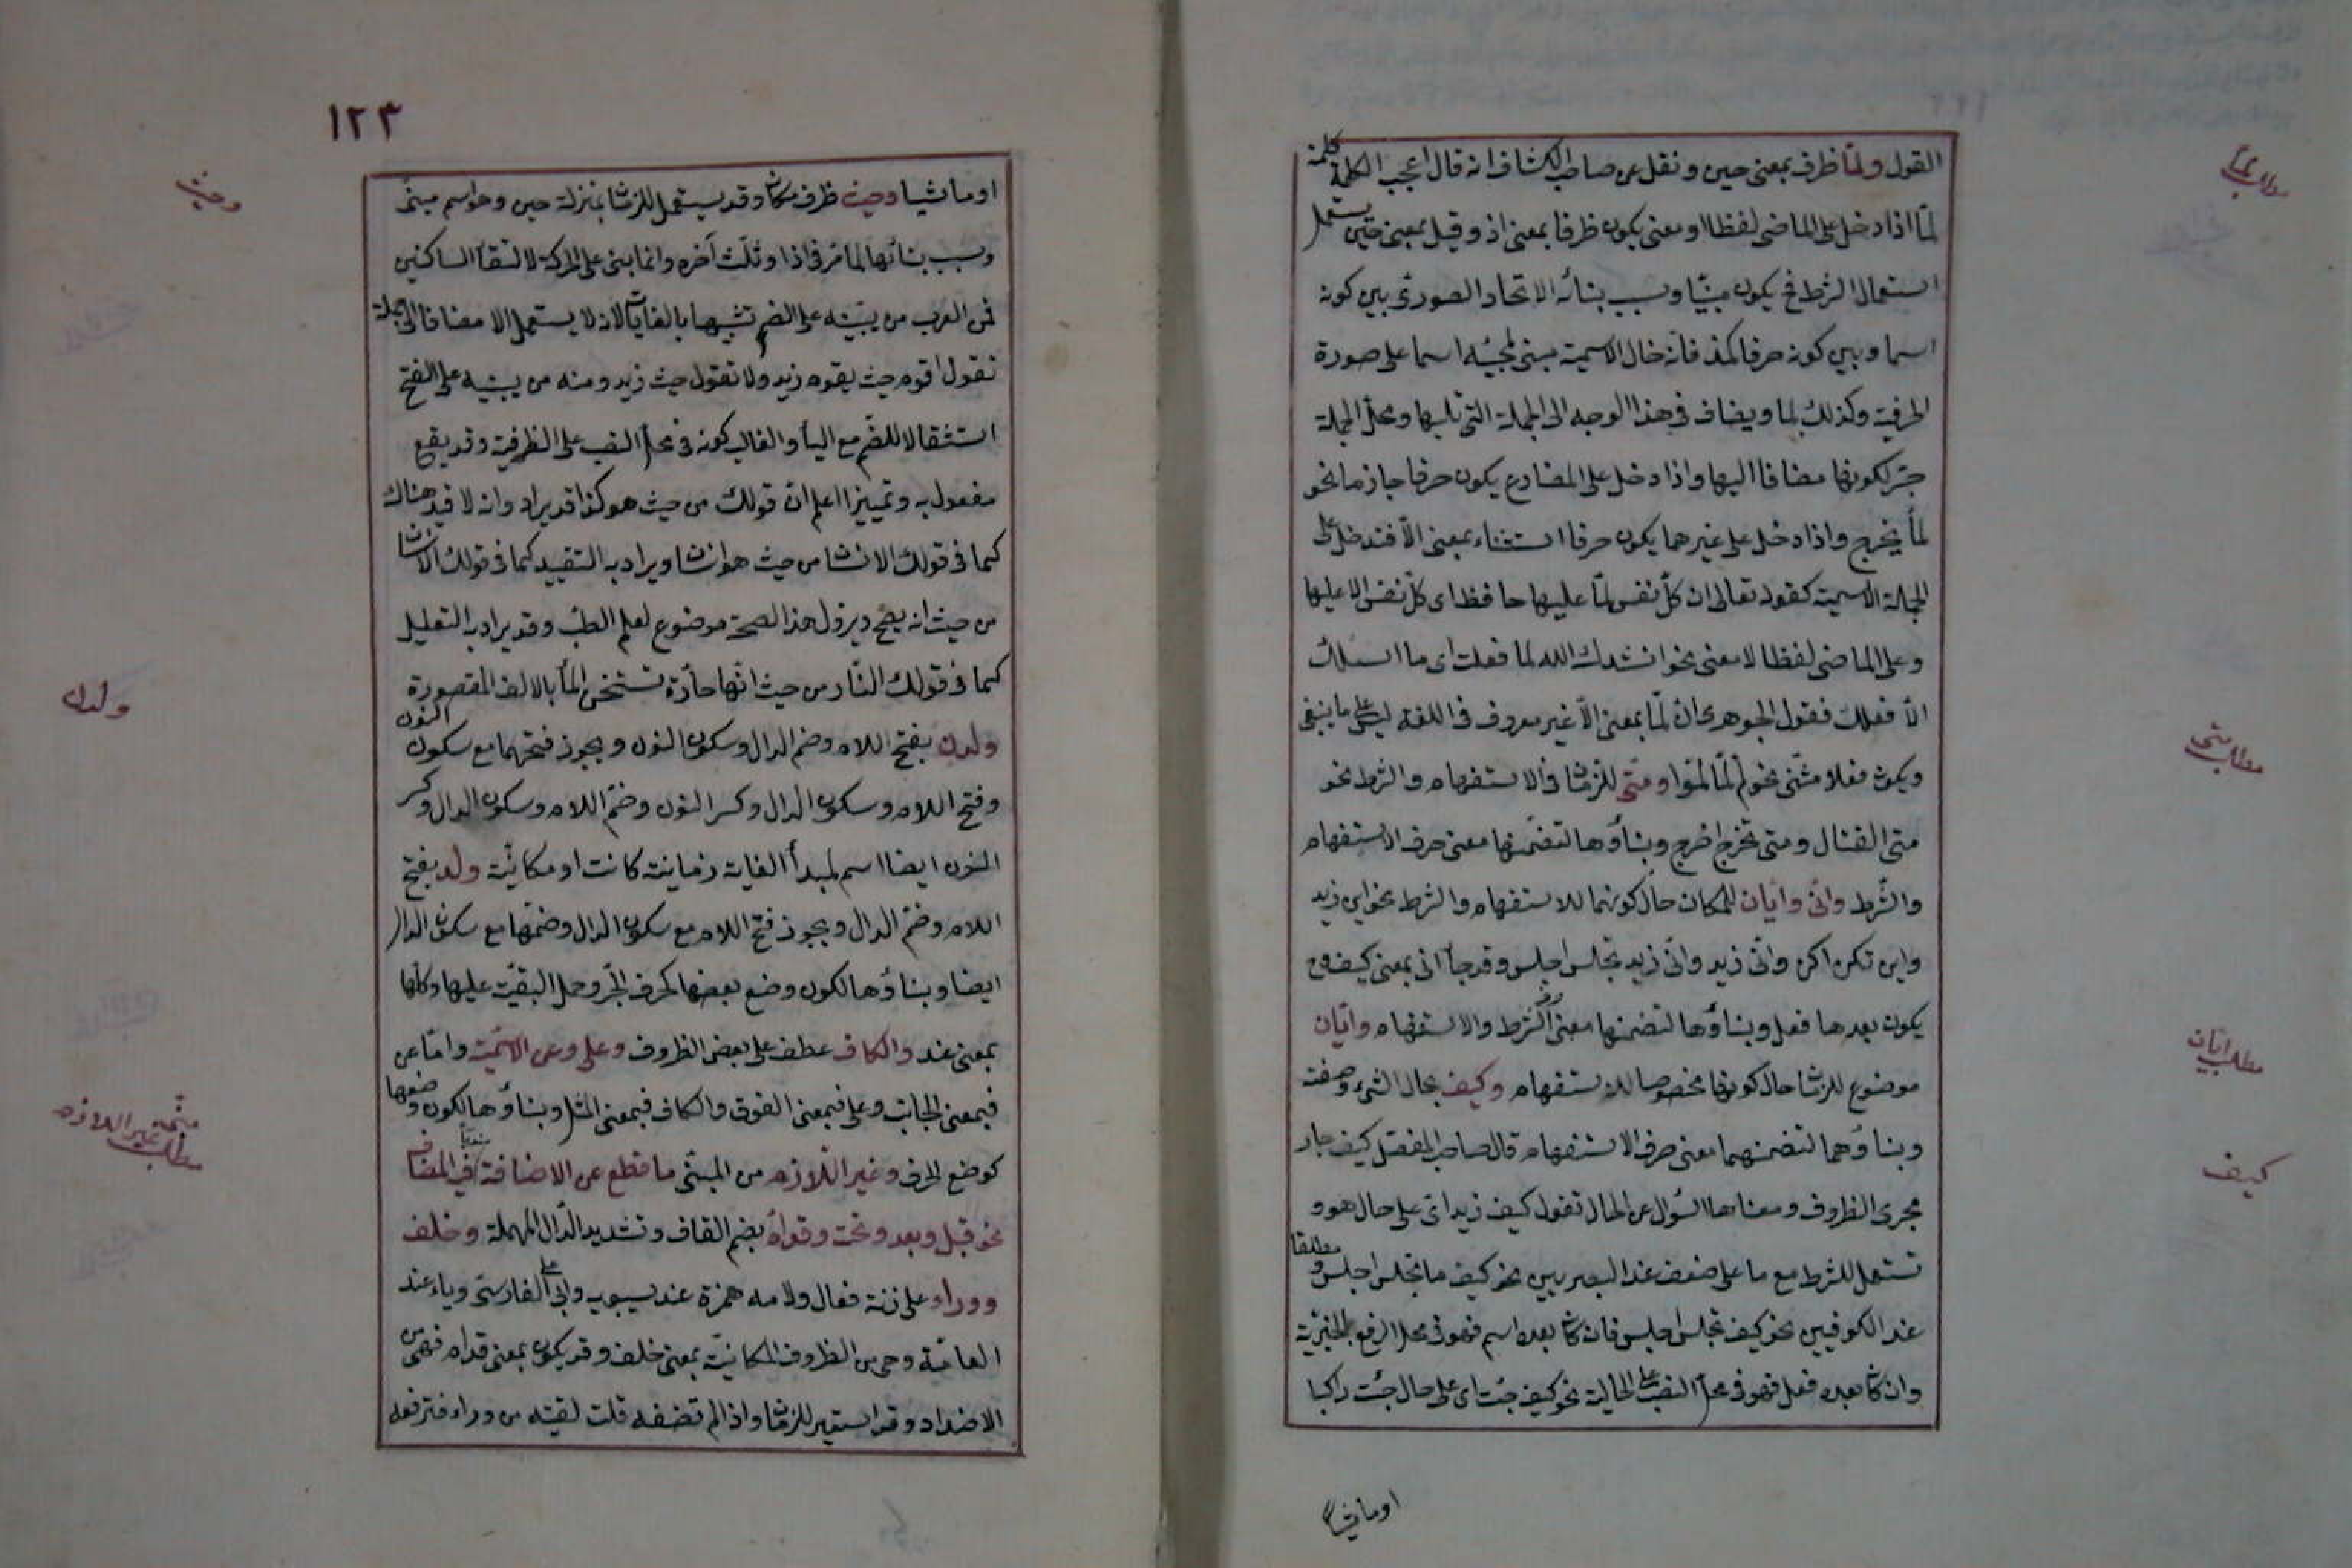 القول ولمّا ظرف بمعنى حين ونقل عن صاحب الكشاف انه قال اعجب الكلمة كلمة
لمّا اذا دخل على الماضى لفظا او معنى يكون ظرفا بمعنى اذ وقيل بمعنى حين يستعمل
استعمال الشرط فح يكون مبنيّا وسبب بنائه الاتحاد الصورى بين كونه
اسما وبين كونه حرفا كمذ فانه حال الاسمية مبنى لمجيئه اسما على صورة
الحرفية وكذلك لما ويضاف فى هذا الوجه الى الجملة التى تليها ومحل الجملة
جر لكونها مضافا اليها واذا دخل على المضارع يكون حرفا جازما نحو
لمّا يخرج واذا دخل على غيرهما يكون حرفا استثناء بمعنى الّا فتدخل على
الجملة الاسمية كقوله تعالى ان كلّ نفس لمّا عليها حافظ اى كلّ نفس الا عليها
وعلى الماضى لفظا لا معنى نحو انشدك الله لما فعلت اى ما اسئلك
الّا فعلك فقول الجوهرى انّ لمّا بمعنى الّا غير معروف فى اللغة ليس على ما ينبغى
ويكون فعلا مثنى نحو لم لمّا لمّوا ومتى للزمان فى الاستفهام والشرط نحو
متى القتال ومتى تخرج اخرج وبناؤها لتضمنها معنى حرف الاستفهام
والشّرط وانّى وايّان للمكان حال كونهما للاستفهام والشرط نحو اين زيد
واين تكن اكن وانّى زيد وانّى زيد تجلس اجلس وقد جأ انى بمعنى كيف وح
يكون بعدها فعل وبناؤها لتضمنها معنى الشرط والاستفهام وايّان
موضوع للزمان حال كونها مخصوصا للاستفهام وكيف بحال الشئ وصفته
وبناؤهما لتضمنهما معنى حرف الاستفهام قال صاحب المفصل كيف جار
مجرى الظروف ومعناها السؤال عن الحال تقول كيف زيد اى على حال هو و
تستعمل للشرط مع ما على ضعف عند البصريين نحو كيف ما تجلس اجلس و مطلقا
عند الكوفيين نحو كيف تجلس اجلس فان كان بعده اسم فهو فى محل الرفع بالخبرية
وان كان بعده فعل فهو فى محل النصب على الحالية نحو كيف جئت اى على حال جئت راكبا
مطلب متى
مطلب ايّان
كيف
١٢٣
او ماشيا وحيث ظرف مكان وقد يستعمل للزمان بمنزلة حين وهو اسم مبنى
وسبب بنائها لما مر فى اذا وثلّث آخره وانما بنى على الحركة لالتقأ الساكنين
فمن العرب من يبنيه على الضم تشبيها بالغايات لانه لا يستعمل الا مضافا الى الجملة
تقول اقوم حيث يقوم زيد ولا تقول حيث زيد ومنه من يبنيه على الفتح
استثقالا للضم مع اليأ والغالب كونه فى محل النصب على الظرفية وقد يقع
مفعول به وتمييزا اعلم انّ قولك من حيث هو كذا قد يراد وانه لا قيد هناك
كما فى قولك الانسان من حيث هو انسان ويراد به التقييد كما فى قولك الانسان
من حيث انه يصح ويزول هذا الصحة موضوع لعلم الطب وقد يراد به التعليل
كما فى قولك النّار من حيث انّها حارّة تستخن المأ بالالف المقصورة
ولدن بفتح اللام وضم الدال وسكون النون ويجوز فتحهما مع سكون النون
وفتح اللام وسكون الدال وكسر النون وضمّ اللام وسكون الدال وكسر
النون ايضا اسم لمبدأ الغاية زمانية كانت او مكانيّة ولد بفتح
اللام وضم الدال ويجوز فتح اللام مع سكون الدال وضمّها مع سكون الدال
ايضا وبناؤها لكون وضع بعضها كحرف الجرّ وحمل البقيّة عليها وكلّها
بمعنى عند والكاف عطف على بعض الظروف وعلى وعن الاسميّة وامّا عن
فبمعنى الجانب وعلى فبمعنى الفوق والكاف فبمعنى المثل وبناؤها لكون وضعها
كوضع الحرف وغير اللّازم من المبنّى ما قطع عن الاضافة منويّا فى المضاف
نحو قبل وبعد وتحت وقدام بضم القاف وتشديد الدّال المهملة وخلف
ووراء على زنة فعال ولامه همزة عند سيبويه وابى على الفارسى وياء عند
العامّة وهى من الظروف المكانيّة بمعنى خلف وقد يكون بمعنى قدام فهى من
الاضداد وقد استعير للزمان واذا لم تضفه قلت لقيته من وراء فترفعه
ولدن